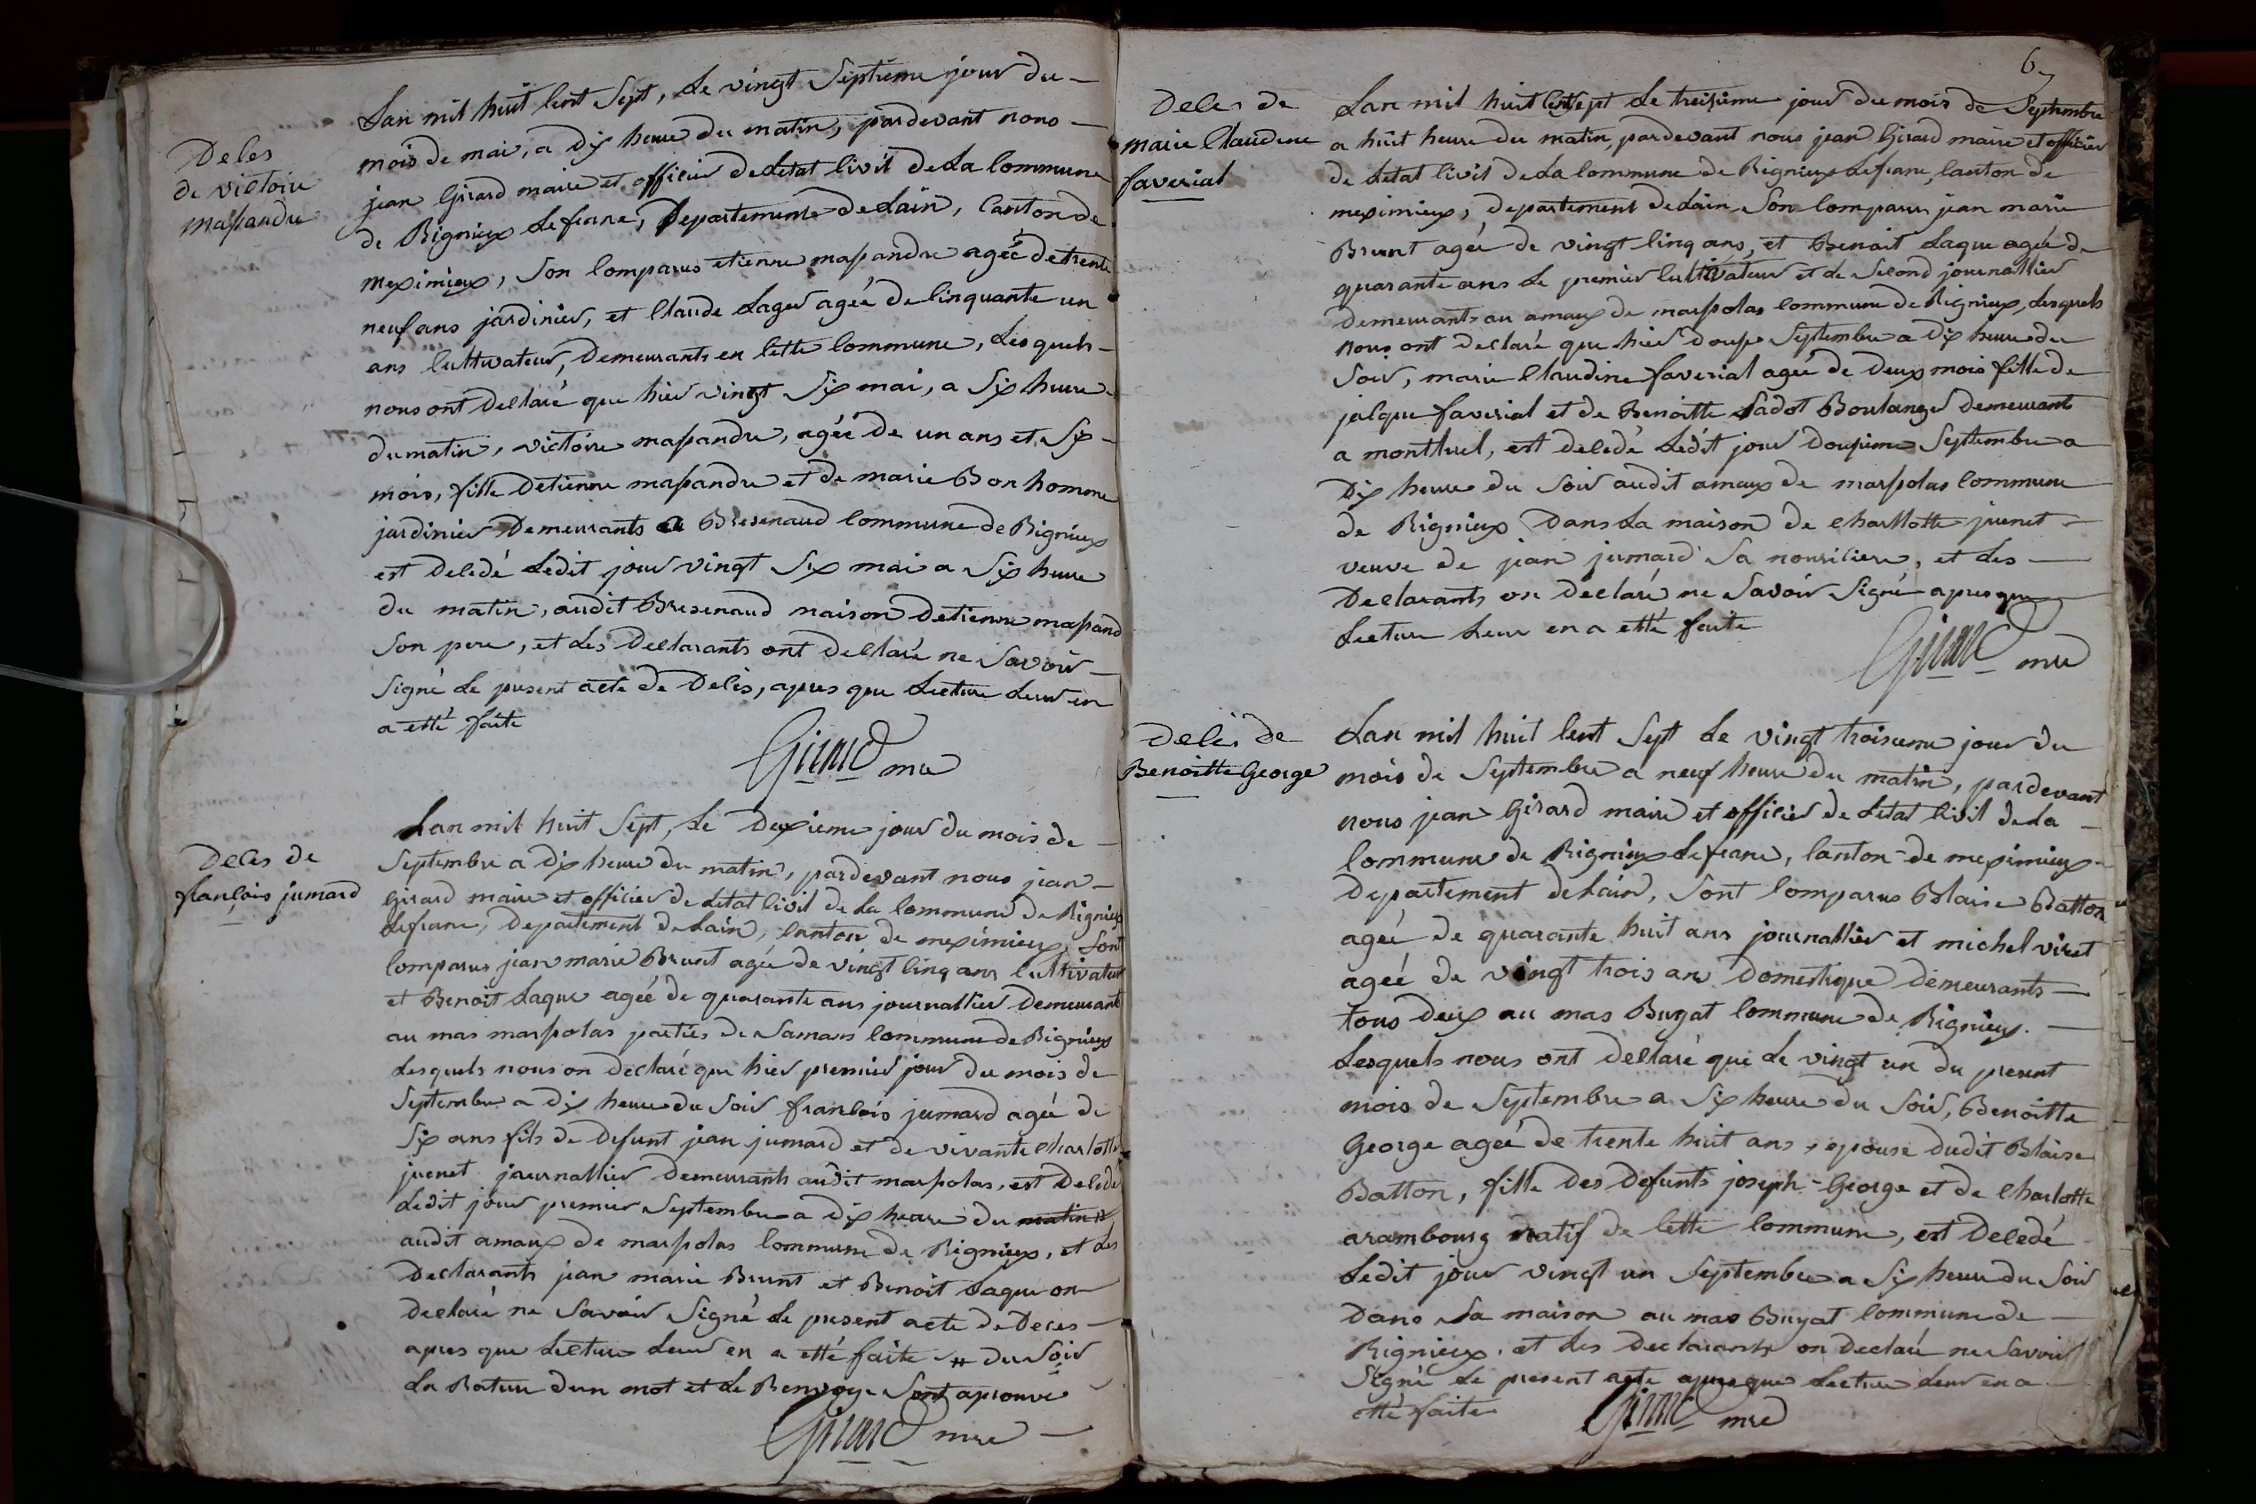 Deces
de victoire
mapandre
Lan mil huit Cent Sept, Le vingt Septieme jour du
mois de mai, a dix heure du matin, pardevant nous
jean Girard maire et officier de Letat Civil de La Commune
de Rignieux Lefranc, Departement de Lain, Canton de
meximieux, Son Comparus etienne mapandre ageé de trente
neuf ans jardinier, et Claude Lager ageé de Cinquante un
ans Cultivateur, Demeurants en Cette Commune, Lesquels
nous ont Declaré que hier vingt Six mai, a Six heure
du matin, victoire mapandre, ageé de un ans et Six
mois, fille Detienne mapandre et de marie Bon homme
jardinier Demeurants a Bresenaud Commune de Rignieux
est Decedé Ledit jour vingt Six mai a Six heure
du matin, audit Bresenaud maison Detienne mapand
Son pere, et Les Declarants ont Declaré ne Savoir
Signé Le present acte de Deces, apres que Lecture Leur en
a etté faite
Girard mre
Deces de
francois jumard
Lan mil huit Sept, Le Deuxieme jour du mois de
Septembre a Dix heure du matin, pardevant nous jean
Girard maire et officier de Letat Civil de La Commune de Rignieux
Lefranc, Departement de Lain, Canton de meximieux, Sont
Comparus jean marie Brunt ageé de vingt Cinq ans Cultivateur
et Benoit Laque ageé de quarante ans journallier Demeurant
au mas marpolas parties de Samans Commune de Rignieux
Lesquels nous on declaré que hier premier jour du mois de
Septembre a Dix heure du Soir francois jumard ageé de
Six ans fils de Defunt jean jumard et de vivante Charlotte
juenet journallier Demeurants audit marpolas, est Decedé
Ledit jour premier Septembre a Dix heure du matin #
audit amaux de marpolas Commune de Rignieux, et Les
Declarants jean marie Brunt et Benoit Laque on
declaré ne Savoir Signé Le present acte de Deces
apres que Lecture Leur en a etté faite # du Soir
La Rature dun mot et Le Renvoye Sont aprouvé
Girard mre
67
Deces de
marie Claudine
faverial
Lan mil huit Cent Sept Le treisieme jour du mois de Septembre
a huit heure du matin pardevant nous jean Girard maire et officier
de Letat Civil de La Commune de Rignieux Lefranc, Canton de
meximieux, Departement de Lain, Son Comparus jean marie
Brunt ageé de vingt Cinq ans, et Benoit Laque ageé de
quarante ans Le premier Cultivateur et Le Second journallier
Demeurants au amaux de marpolas Commune de Rignieux, Lesquels
nous ont declaré que hier Douse Septembre a Dix heure du
Soir, marie Claudine faverial ageé de Deux mois fille de
jacque faverial et de Benoitte Ladot Boulanger Demeurant
a montluel, est decedé Ledit jour Dousieme Septembre a
Dix heure du Soir audit amaux de marpolas Commune
de Rignieux Dans La maison de Charllotte juenet
veuve de jean jumard Sa nouriciere, et Les
Declarants on Declaré ne Savoir Signé apres que
Lecture Leur en a etté faite
Girard mre
Deces de
Benoitte George
Lan mil huit Cent Sept Le vingt troisieme jour du
mois de Septembre a neuf heure du matin, pardevant
nous jean Girard maire et officier de Letat Civil de La
Commune de Rignieux Lefranc, Canton de meximieux
Departement de Lain, Sont Comparus Blaise Batton
ageé de quarante huit ans journallier et michel viret
ageé de vingt trois ans Domestique demeurants
tous Deux au mas Buyat Commune de Rignieux.
Lesquels nous ont declaré que Le vingt un du present
mois de Septembre a Six heure du Soir, Benoitte
George ageé de trente huit ans, epouse dudit Blaise
Batton, fille Des Defunts joseph George et de Charlotte
arambourg natif de Cette Commune, est Decedé
Ledit jour vingt un Septembre a Six heure du Soir
Dans Sa maison au mas Buyat Commune de
Rignieux, et Les Declarants on declaré ne Savoir
Signé Le present acte apres que Lecture Leur en a
etté faite
Girard mre